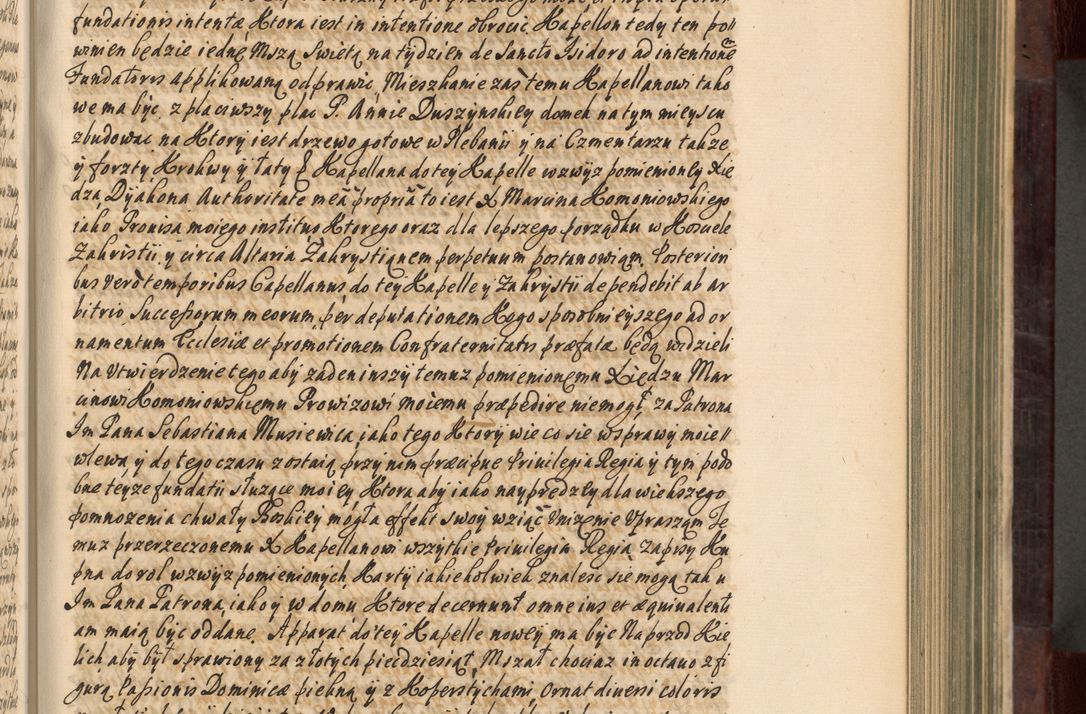 fundationis intentæ Ktora iest in intentione obrocic Kapellon tedy ten po//
winien będzie iednę Mszą Swietą na tydzien de Sancto Isidoro ad intentionē
Fundatoris applikowaną odprawic, Mieszkanie zas temu Kapellanowi tako
we ma byc z placiwszy plac P. Annie Duszynskiey domek na tym mieyscu
zbudowac na Ktory iest drzewo gotowe w Plebanii y na Czmentarzu takze
y forzty Krokwy y łaty Kapellana do tey Kapelle wzwyz pomienioney Xie
dza Dyakona Authoritate meâ propriâ to iest X Marcina Komoniowskiego
iako Prouisa moiego institus Ktorego oraz dla lepszego porządku w Kosciele
Zakristii y circa Altaria Zakrystianem perpetuum postanowiąm Posteriori
bus vero temporibus Capellanus do tey Kapelle y Zakrystii dependebit ab ar
bitrio Successorum meorum per deputationem Kogo sposolnieyszego ad or
namentum Ecclesiæ et promotionem Confraternitatis præfatæ będą widzieli
Na Utwierdzenie tego aby zaden inszy temuz pomienionemu Xiedzu Mar
cinowi Komoniowskiemu Prowizowi moiemu præpedire niemogł za Patrona
Im Pana Sebastiana Musiewica iako tego Ktory wie co sie w sprawy moie//
wlewa y do tego czasu zostaią przy nim præcipue Priuilegia Regia y tym podo
bne teyze fundatii słuzące moiey Ktora aby iako nayprędzey dla wiekszego
pomnozenia chwały Boskiey mogła effekt swoy wziąc Unizenie Upraszam Te
muz przerzeczonemu X Kapellanowi wszytkie Priuilegia Regia Zapisy Ku
pna do rol wzwyz pomienionych Karty iakiekolwiek znalesc sie mogą tak u
Im Pana Patrona, iako y w domu Ktore decernunt omne ius et æquiualenti
am maią byc oddane. Apparat do tey Kapelle nowey ma byc Naprzod Kie
lich aby był sprawiony za złotych piecdziesiąt, Mszał chociaz in octauo z fi
gurą Passionis Dominicæ piekną y z Koperstychami, Ornat diuersi coloris